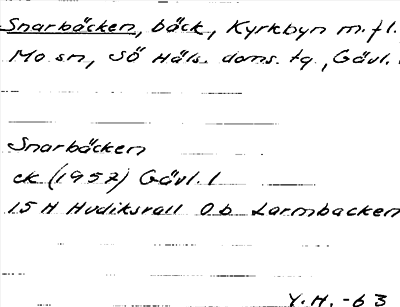 Snarbäcken, bäck, Kyrkbyn m.fl.
Mo sn, Sö Häls. doms. tg., Gävl. l
Snarbäcken
ek (1957) Gävl. l
15 H Hudiksvall 0 b Larmbacken
Y.H. -63